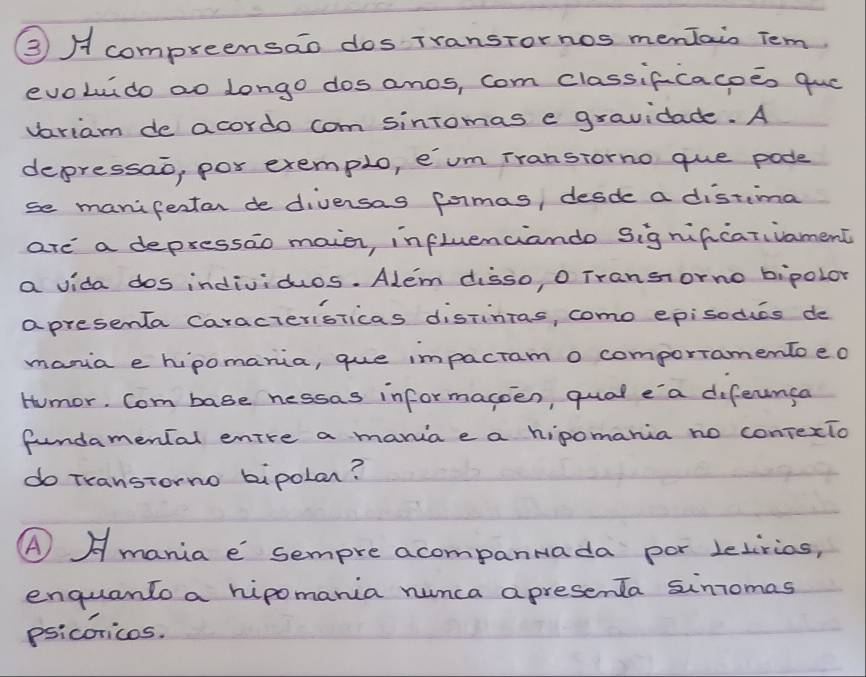 ③ A compreensão dos transtornos mentais tem
evoluído ao longo dos anos, com classificações que
variam de acordo com sintomas e gravidade. A
depressão, por exemplo, é um transtorno que pode
se manifestar de diversas formas, desde a distima
até a depressão maior, influenciando significativament
a vida dos individuos. Além disso, o transtorno bipolar
apresenta características distintas, como episodiós de
mania e hipomania, que impactam o comportamento e o
Humor. Com base nessas informações, qual é a diferença
fundamental entre a mania e a hipomania no contexto
do transtorno bipolar?
Ⓐ A mania é sempre acompanhada por delirios,
enquanto a hipomania nunca apresenta sintomas
psicóticos.